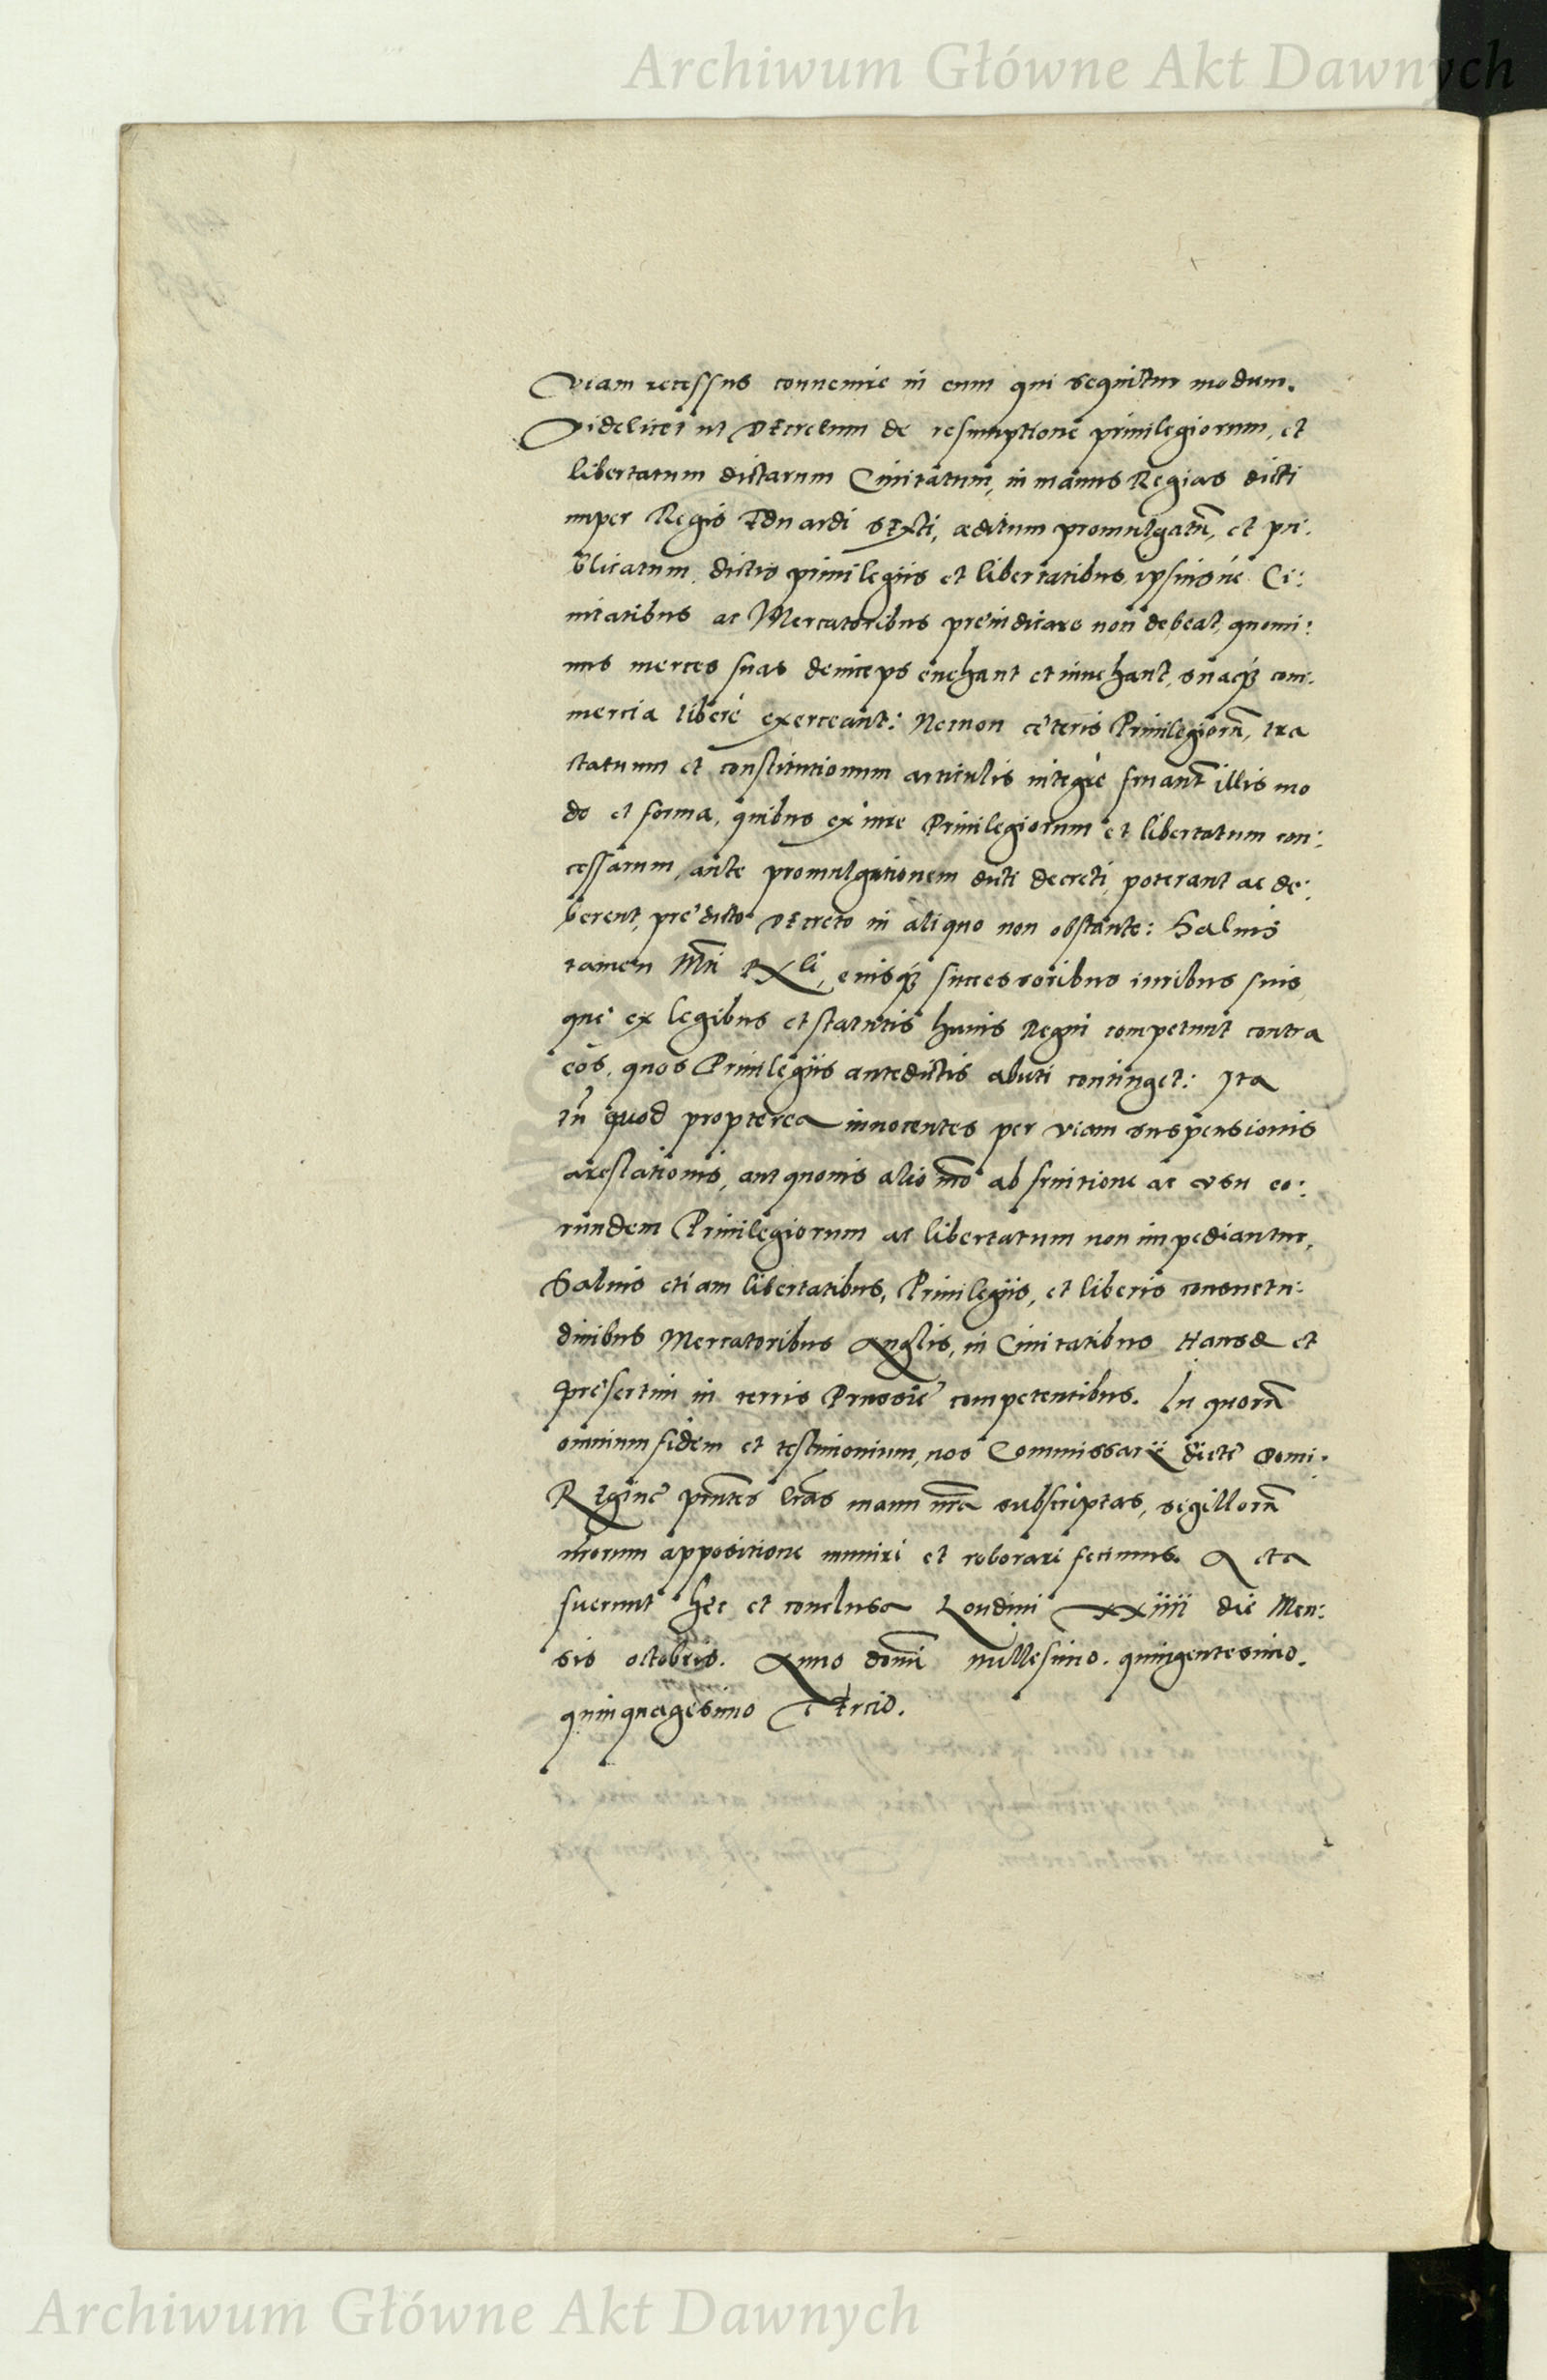 Archiwum Główne Akt Dawnych
viam recessus conuenire in eum qui sequitur modum.
Videlicet ut Decretum de resumptione priuilegiorum, et
libertatum dictarum Ciuitatum, in manus Regias dicti
nuper Regis Eduardi Sexti, æditum promulgatũ, et pu:
blicatum, dictis priuilegiis et libertatibus, ipsiusue Ci:
uitatibus ac Mercatoribus preiudicare non debeat, quomi:
nus merces suas deinceps euehant et inuehant, suaqȝ com:
mercia liberè exerceant: Necnon cęteris Priuilegiorũ, tra
ctatuum et constitutionum articulis integrè fruant illis mo
do et forma, quibus ex iure Priuilegiorum et libertatum con:
cessarum, ante promulgationem dicti decreti, poterant ac de:
berent, prędicto Decreto in aliquo non obstante: Saluis
tamen Mti Rli, eiusqȝ successoribus iuribus suis,
quę ex legibus et statutis huius Regni competunt contra
eos, quos Priuilegiis antedictis abuti continget: Ita
tñ quod propterea innocentes per viam suspensionis
arestationis, aut quouis alio mõ ab fruitione ac vsu eo:
rundem Priuilegiorum ac libertatum non impediantur,
Saluis etiam libertatibus, Priuilegiis, et liberis consuetu:
dinibus Mercatoribus Anglis, in Ciuitatibus Hansæ et
pręsertim in terris Prussię competentibus. In quorũ
omnium fidem et testimonium, nos Commissarii dictę Domi:
Reginę pñtes lrãs manu nrã subscriptas, sigillorũ
nrorum appositione muniri et roborari fecimus. Acta
fuerunt hęc et conclusa Londini xxiiii die Men:
sis octobris. Anno domi millesimo. quingentesimo.
quinquagesimo Tertio.
Archiwum Główne Akt Dawnych